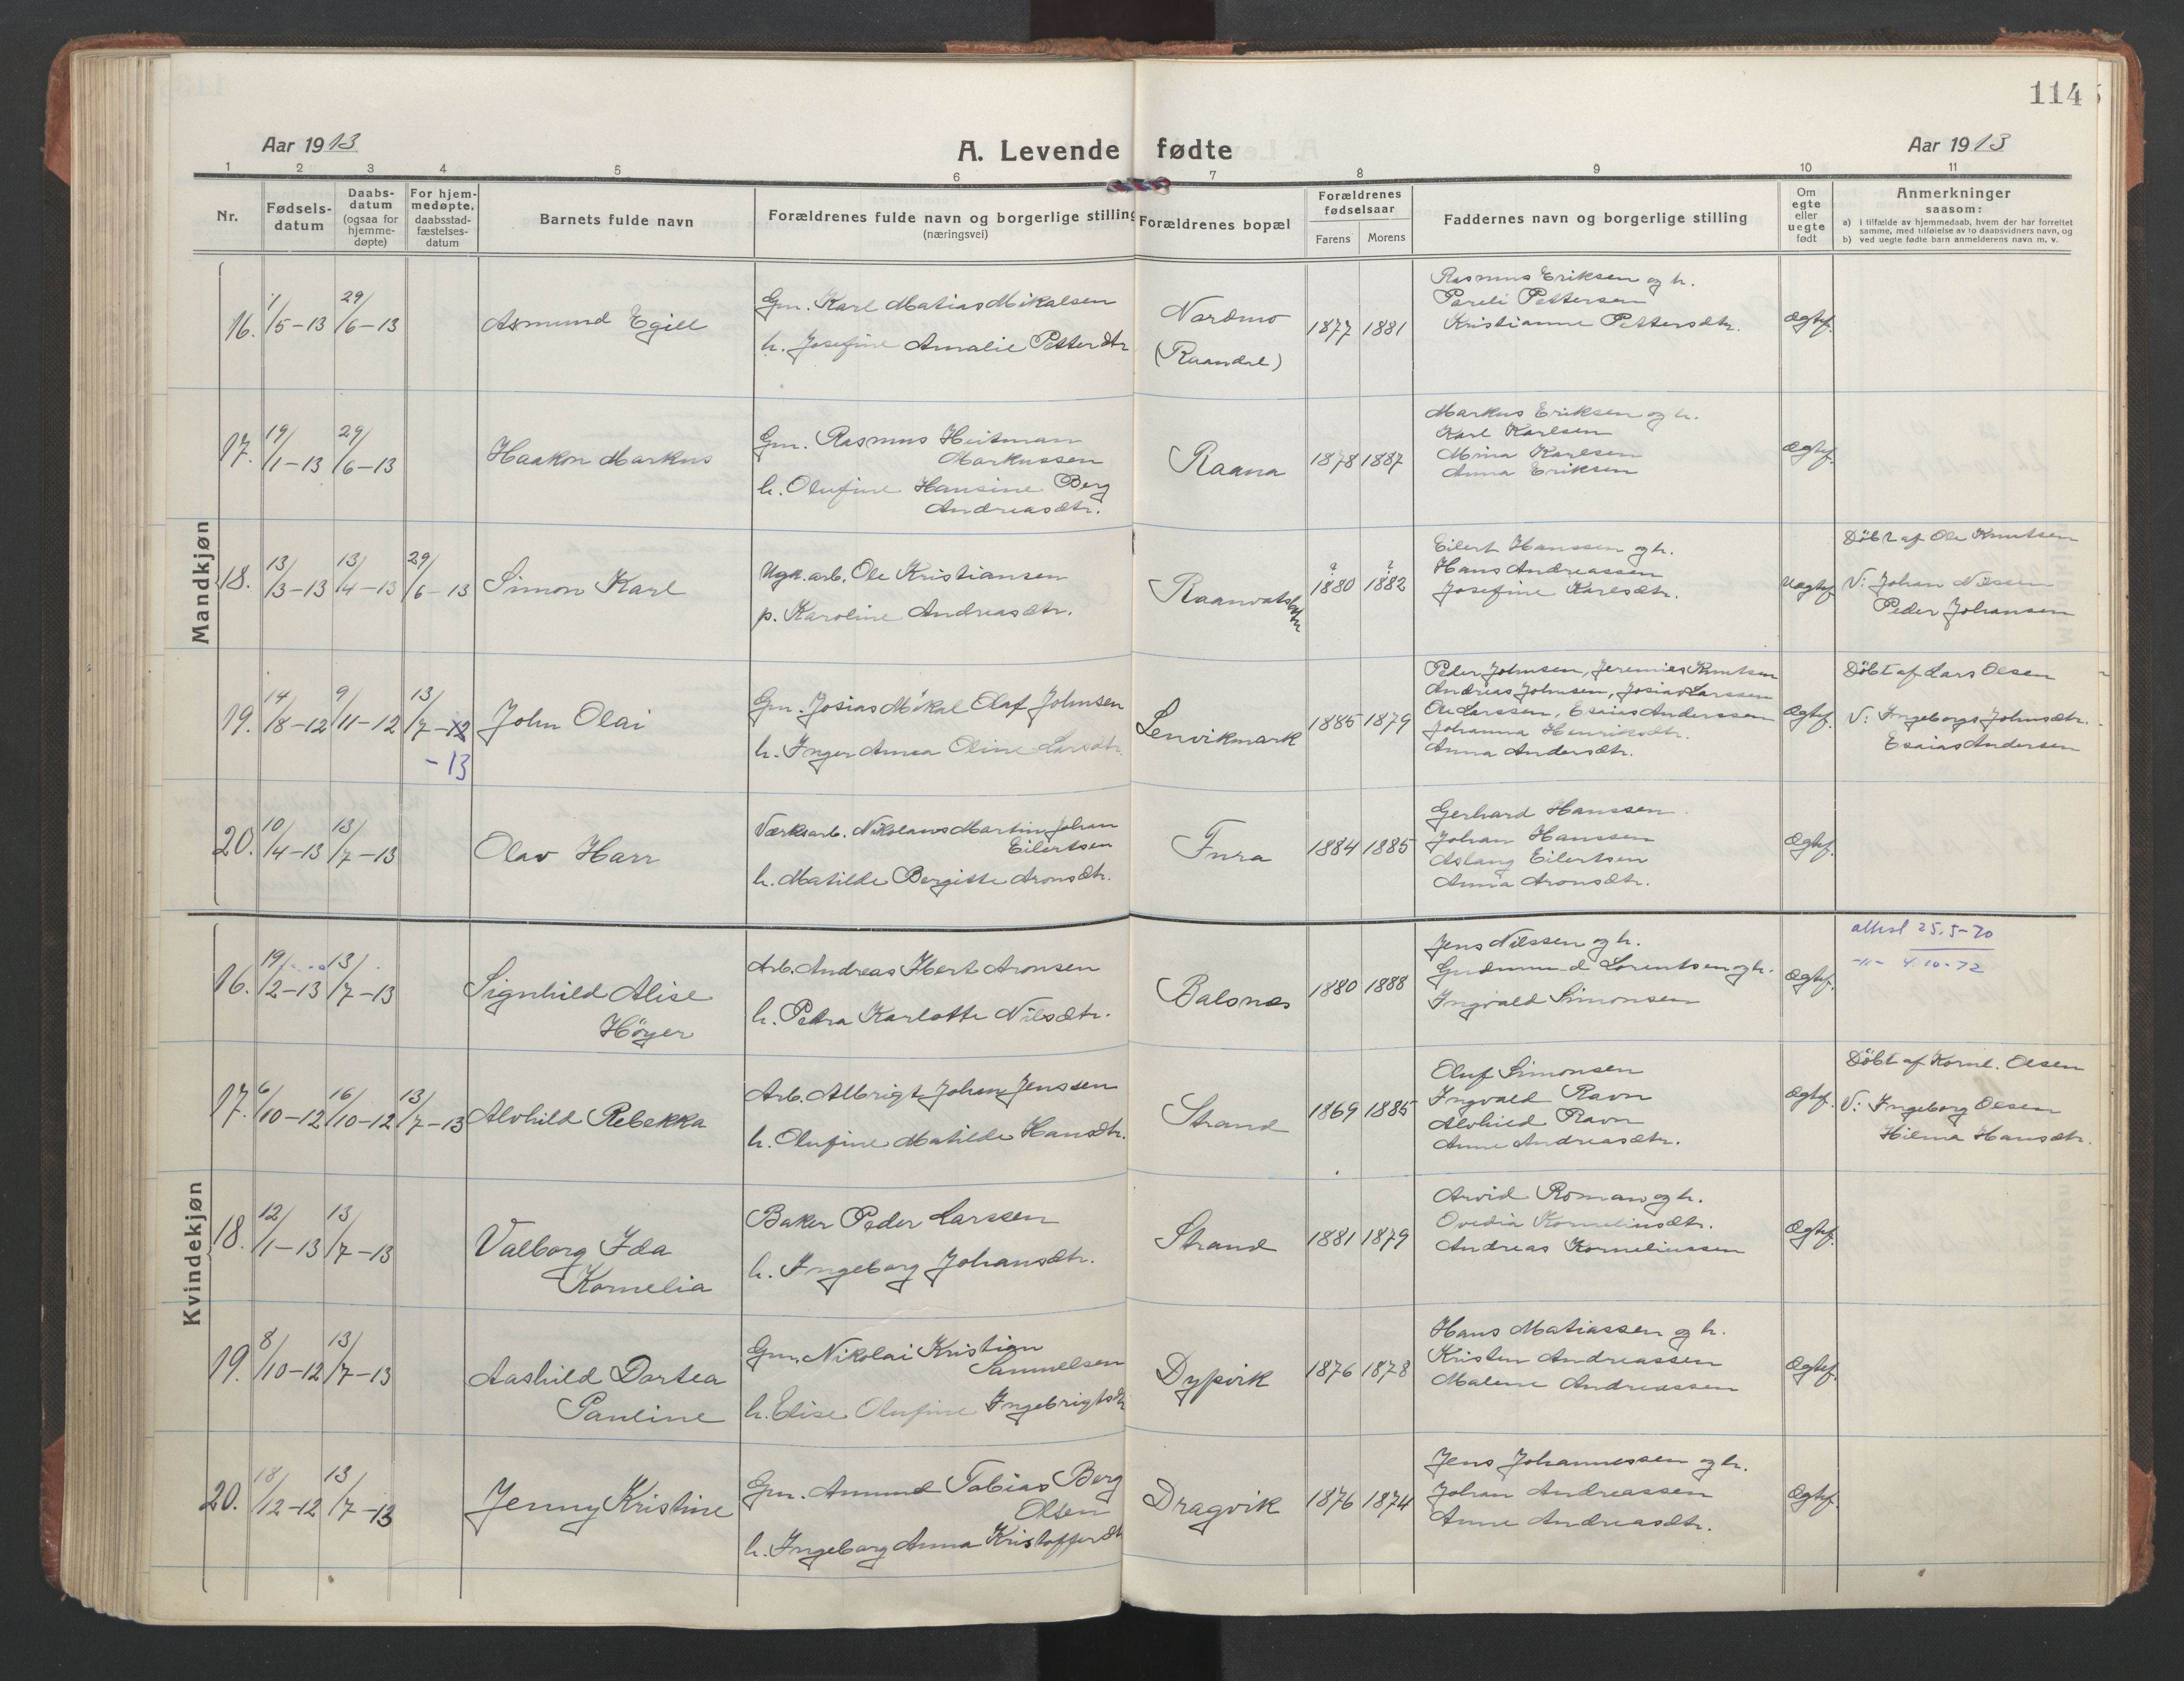 114
Aar 1913
A. Levende fødte
Aar 1913
1 2 3 4 5 6 7 8 9 10 11
Nr.
Fødsels-
datum
Daabs-
datum
(ogsaa for
hjemme-
døpte)
For hjem-
medøpte.
daabsstad-
fæstelses-
datum
Barnets fulde navn
Forældrenes fulde navn og borgerlige stilling
(næringsvei)
Forældrenes bopæl
Forældrenes
fødselsaar
Farens Morens
Faddernes navn og borgerlige stilling
Om
egte
eller
uegte
født
Anmerkninger
saasom:
a) i tilfælde av hjemmedaab, hvem der har forrettet
samme, med tilføielse av to daabsvidners navn, og
b) ved uegte fødte barn anmelderens navn m. v.
Mandkjøn
16. 1/5-13 29/6-13 Asmund Egill
Gm. Karl Matias Mikalsen
h. Josefine Amalie Petterdtr
Nordmo
(Raandal)
1877 1881
Rasmus Eriksen og h.
Pareli Pettersen
Kristianne Pettersdtr.
Ægtef.
17. 19/1-13 29/6-13 Haakon Markus
Gm. Rasmus Heitman
Markussen
h. Olufine Hansine Berg
Andreasdtr.
Raana
1878 1887
Markus Eriksen og h.
Karl Karlsen
Mina Karlsen
Anna Eriksen
Ægtef.
18. 13/3-13 13/4-13 29/6-13 Simon Karl
Ugk. arb. Ole Kristiansen
p. Karoline Andreasdtr.
? 1880 ? 1882
Eilert Hanssen og h.
Hans Andreassen
Josefine Karlsdtr.
Uægtef.
Döbt af Ole Knutsen
V: Johan Nilssen
Peder Johansen
19. 14/8-12 9/11-12 13/7-12 John Olai
-13
Gm. Josias Mikal Olaf Johnsen
h. Inger Anna Oline Larsdtr.
Lenvikmark
1885 1879
Peder Johnsen, Jeremias Knutsen
Andreas Johnsen, Josias Larssen
Ole Larssen, Esaias Anderssen
Johanna Henriksdtr.
Anna Andersdtr.
Ægtef.
Döbt af Lars Olsen
V: Ingeborg Johnsdtr.
Esaias Andersen
20. 10/4-13 13/7-13 Olav Harr
Værksarb. Nikolaus Martin Johan
Eilertsen
h. Matilde Bergitte Aronsdtr.
Fura
1884 1885
Gerhard Hanssen
Johan Hanssen
Aslaug Eilertsen
Anna Aronsdtr.
Ægtef.
Kvindekjøn
16. 19/2-13 13/7-13 Signhild Alise
Höyer
Arb. Andreas Hbert Aronsen
h. Petra Karlotte Nilsdtr.
Balsnes
1880 1888
Jens Nilssen og h.
Gudmund Lorentsen og h.
Ingvald Simonsen
Ægtef.
attest 25.5-70
-"- 4.10-72
17. 6/10-12 16/10-12 13/7-13 Alvhild Rebekka
Arb. Albrigt Johan Jenssen
h. Olufine Matilde Hansdtr.
Strand
1869 1885
Oluf Simonsen
Ingvald Ravn
Alvhild Ravn
Anne Andreasdtr.
Ægtef.
Döbt af Kornl. Olsen
V: Ingeborg Olsen
Hilma Hansdtr.
18. 12/1-13 13/7-13 Valborg Ida
Kornelia
Baker Peder Larssen
h. Ingeborg Johansdtr.
Strand
1881 1879
Arvid Roman og h.
Ovedia Korneliusdtr.
Andreas Korneliussen
Ægtef.
19. 8/10-12 13/7-13 Aashild Dortea
Pauline
Gm. Nikolai Kristian
Samuelsen
h. Elise Olufine Ingebrigtsdtr
Dypvik
1876 1878
Hans Matiassen og h.
Kristen Andreassen
Malene Andreassen
Ægtef.
20. 18/12-12 13/7-13 Jenny Kristine
Gm. Amund Tobias Berg
Olsen
h. Ingeborg Anna Kristofferdtr
Dragvik
1876 1874
Jens Johannessen og h.
Johan Andreassen
Anne Andreasdtr.
Ægtef.